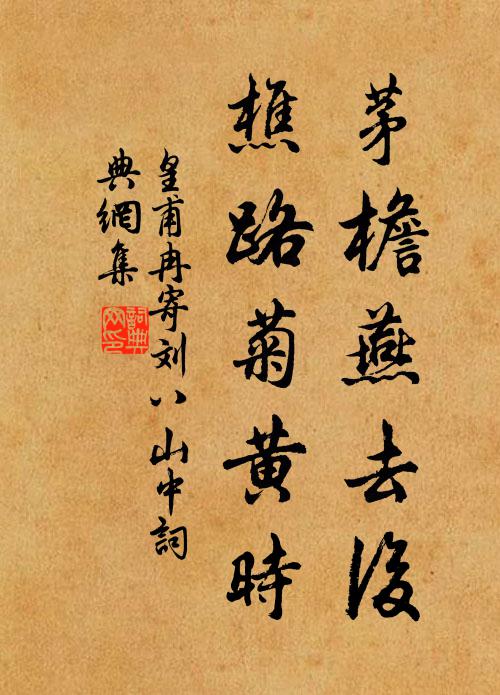 茅檐燕去後
樵路菊黄時
皇甫冉寄刘八山中詞
典網集
詞典網印